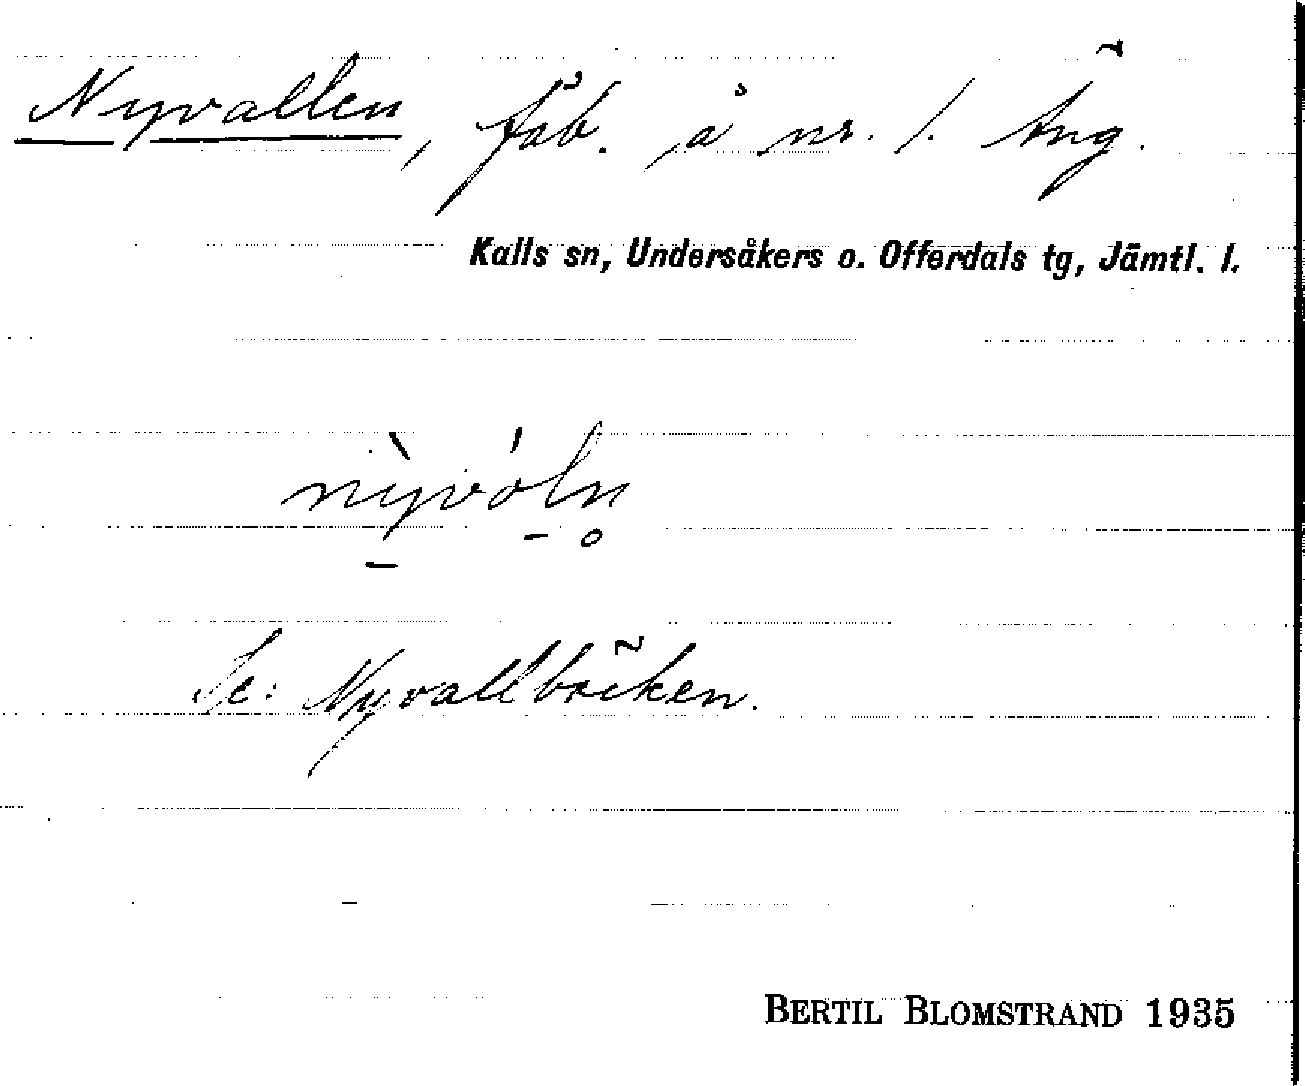 Nyvallen, fäb. å nr. 1. Äng.
Kalls sn, Undersåkers o. Offerdals tg, Jämtl. l.
Se: Nyvallbäcken.
BERTIL BLOMSTRAND 1935